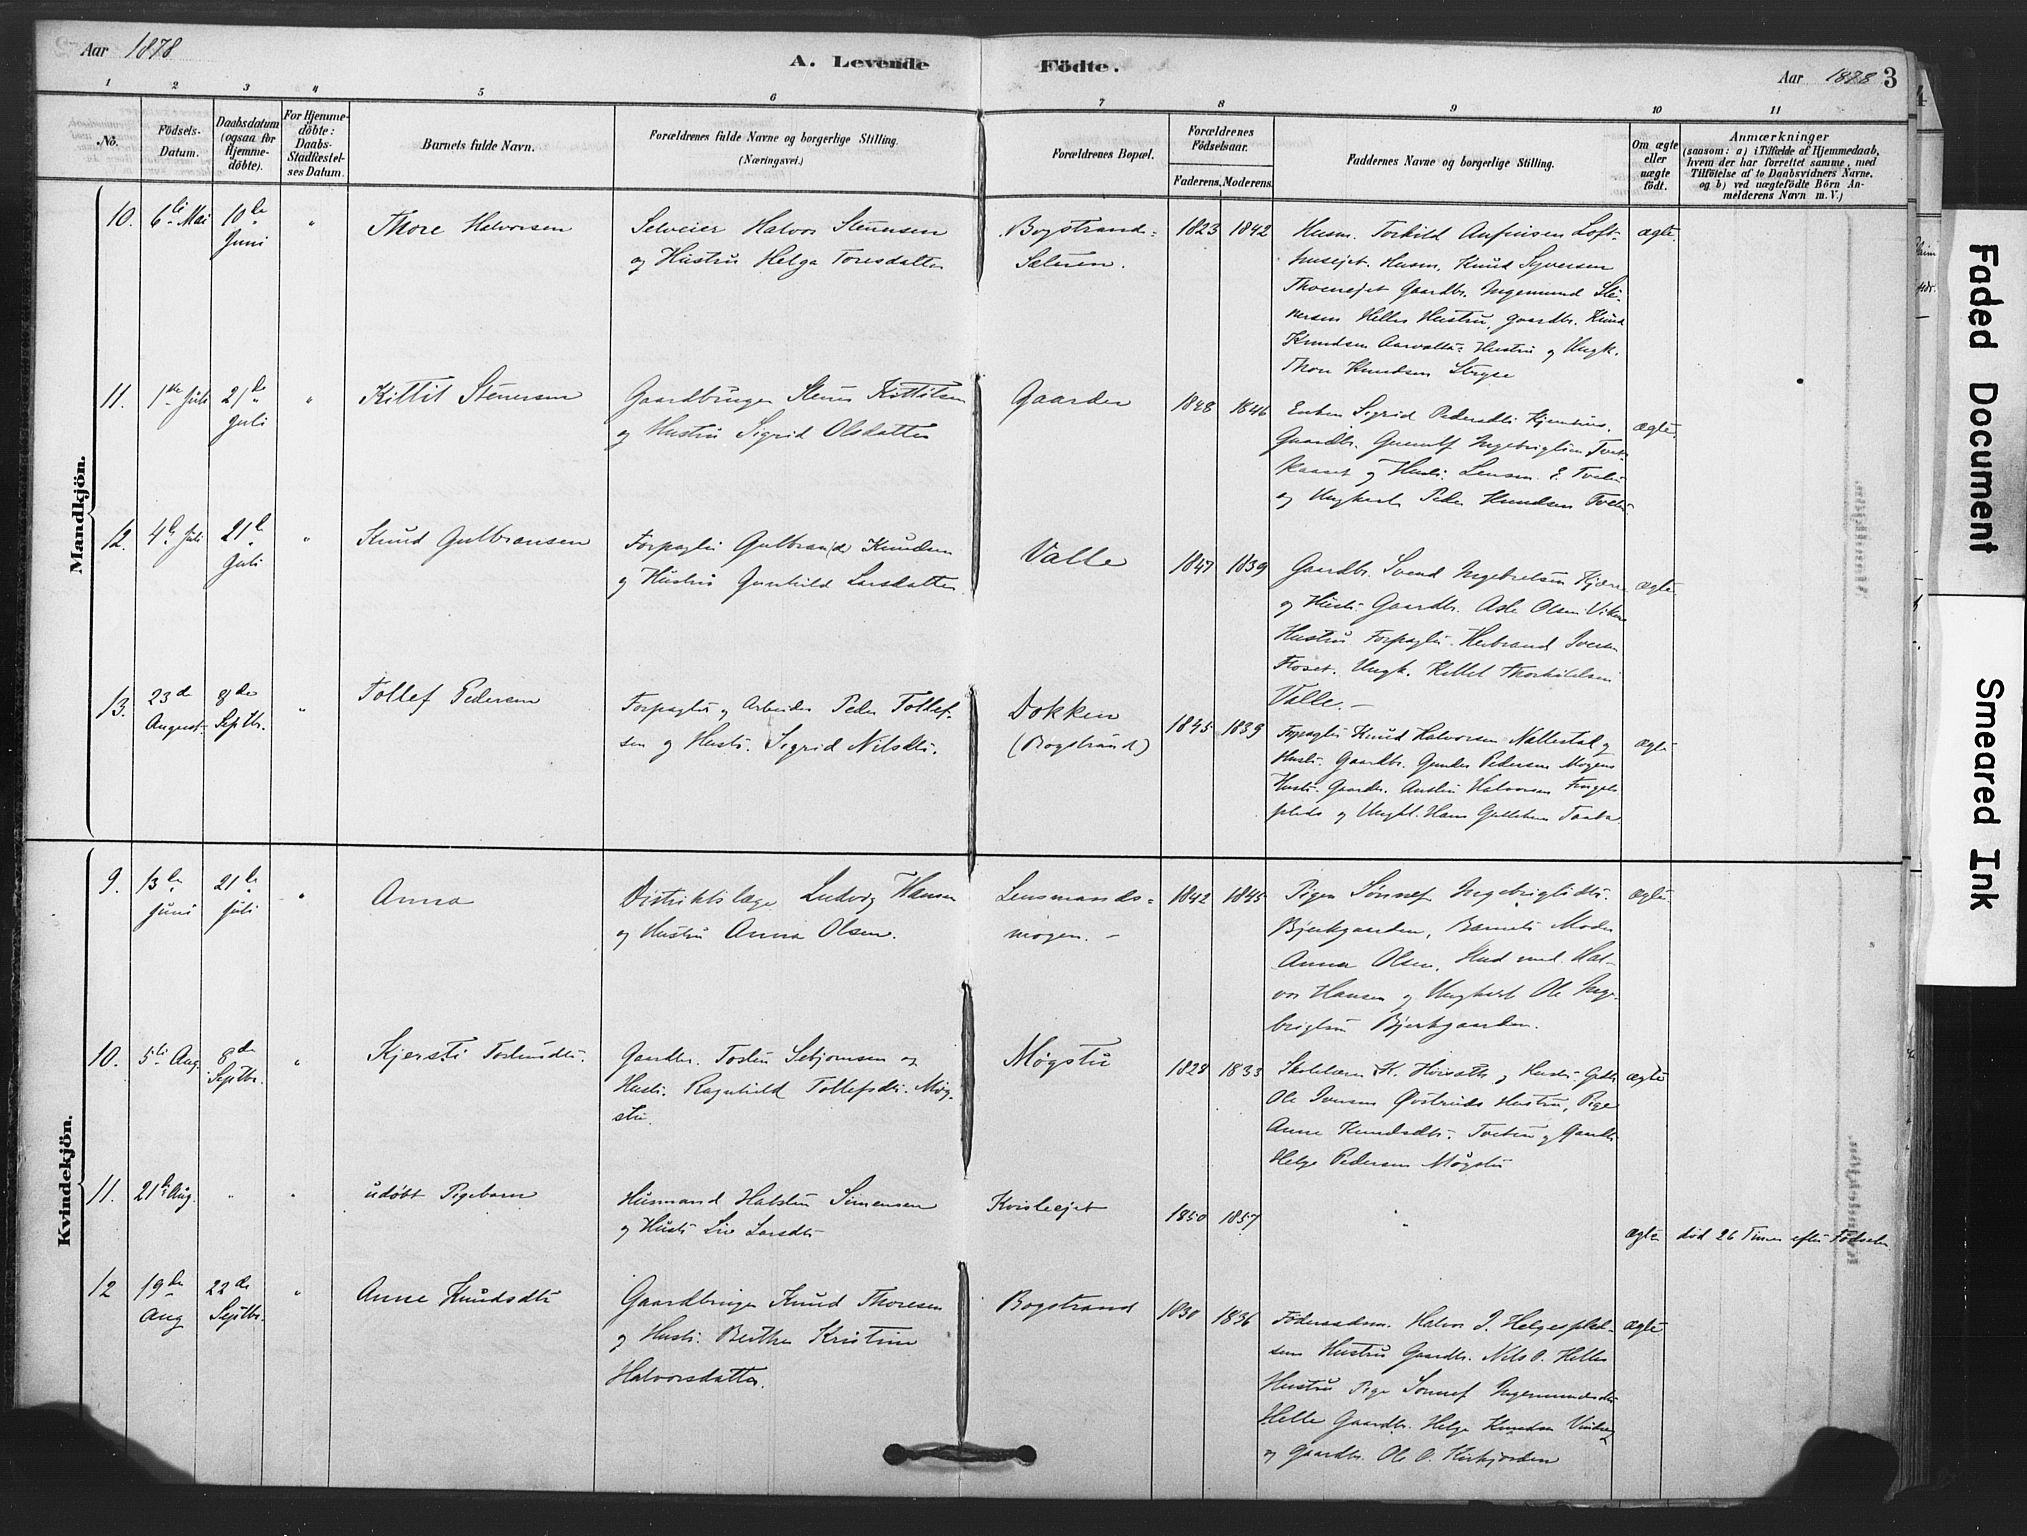 Aar 1878
A. Levende Födte.
Aar 1878 3
1 2 3 4 5 6 7 8 9 10 11
No.
Födsels-
Datum.
Daabsdatum
(ogsaa for
Hjemme-
døbte).
For Hjemme-
døbte:
Daabs-
Stadfæstel-
ses Datum.
Barnets fulde Navn.
Forældrenes fulde Navne og borgerlige Stilling.
(Næringsvei.)
Forældrenes Bopæl.
Forældrenes
Fødselsaar.
Faderens. Moderens.
Faddernes Navne og borgerlige Stilling.
Om ægte
eller
uægte
født.
Anmærkninger
(saasom: a) i Tilfælde af Hjemmedaab,
hvem der har forrettet samme, med
Tilføielse af to Daabsvidners Navne.
og b) ved uægtefödte Börn An-
melderens Navn m. V.)
Mandkjön.
10. 6te Mai
10de
Juni
"
Thore Halvorsen
Selveier Halvor Stenersen
og Hustru Helga Toresdatter
Bogstrand-
Sæteren.
1823 1842
Husm. Torkild Anfinsen Loft-
husejet. Husm. Knud Syversen
Gaardbr. Ingemund Ste-
nersen Helles Hustru, Gaardbr. Knud
Knudsen Hustru og Ungk.
Thore Knudsen
ægte.
11. 1ste Juli
21de
Juli
"
Kittil Stenersen
Gaardbruger Stener Kittilsen
og Hustru Sigrid Olsdatter
Gaarden
1848 1846
Enken Sigrid Pedersdtr.
Gaardbr. Gunulf Ingebrigtsen
og Hustr. Lensm. E.
og Ungkarl Peder Knudsen
ægte.
12. 4de Juli
21de
Juli
"
Knud Gulbransen
Forpagter Gulbrand Knudsen
og Hustru Gunhild Larsdatter
Valle
1847 1839
Gaardbr. Svend Ingebretsen
og Hustr. Gaardbr. Asle Olsen
Hustru Forpagter Herbrand Iversen
Ungk. Kittel
Valle.
ægte
13.
23de
August
8de
Septbr.
"
Tollef Pedersen
Forpagter og Arbeider Peder Tollef-
sen og Hustr. Sigrid Nilsdtr.
Dokken
(Bogstrand)
1845 1839
Forpagter Knud Halvorsen Nattestad og
Hustr. Gaardbr. Gunder Pedersen Mogens
Hustr. Halvorsen
og Ungkl. Hans
ægte
Kvindekjön.
9.
13de
Juni
21de
Juli
"
Anna
Distriktslæge Ludvig Hansen
og Hustru Anna Olsen.
Lensmands-
mogen.
1842 1845
Pigen Sønnef Ingebrigtsdtr.
Bjerkgaarden, Barnets Moder
Anna Olsen, Hal-
vor Hansen og Ungkarl Ole Inge-
brigtsen Bjerkgaarden.
ægte
10. 5te Aug.
8de
Septbr.
"
Kjersti Tostensdtr.
Gaardbr. Tosten Sebjørnsen og
Hustr. Ragnhild Tollefsdtr. Møg-
stu.
Møgstu
1828 1833
Skolelærer K. og Hustr. Gdbr.
Ole Iversen Øvstruds Hustru, Pige
Anne Knudsdtr. og Gaardbr.
Helge Pedersen Møgstu
ægte
11. 21de Aug.
"
"
udøbt Pigebarn
Husmand Halsten Simensen
og Hustr. Liv Larsdtr.
Kvisleejet
1850 1857
"
ægte
død 26 Timer efter Fødselen
12
19de
Aug
22de
Septbr.
"
Anne Knudsdtr
Gaardbruger Knud Thoresen
og Hustr. Berthe Kristine
Halvorsdatter.
Bogstrand
1830 1836
Föderaadsm. Halvor J. Helgesplad-
sens Hustru Gaardbr. Nils O. Helles
Hustru Pige Sønnef Ingemundsdtr
Helle Gaardbr. Helge Knudsen
og Gaardbr. Ole O.
ægte
Faded Document
Smeared Ink